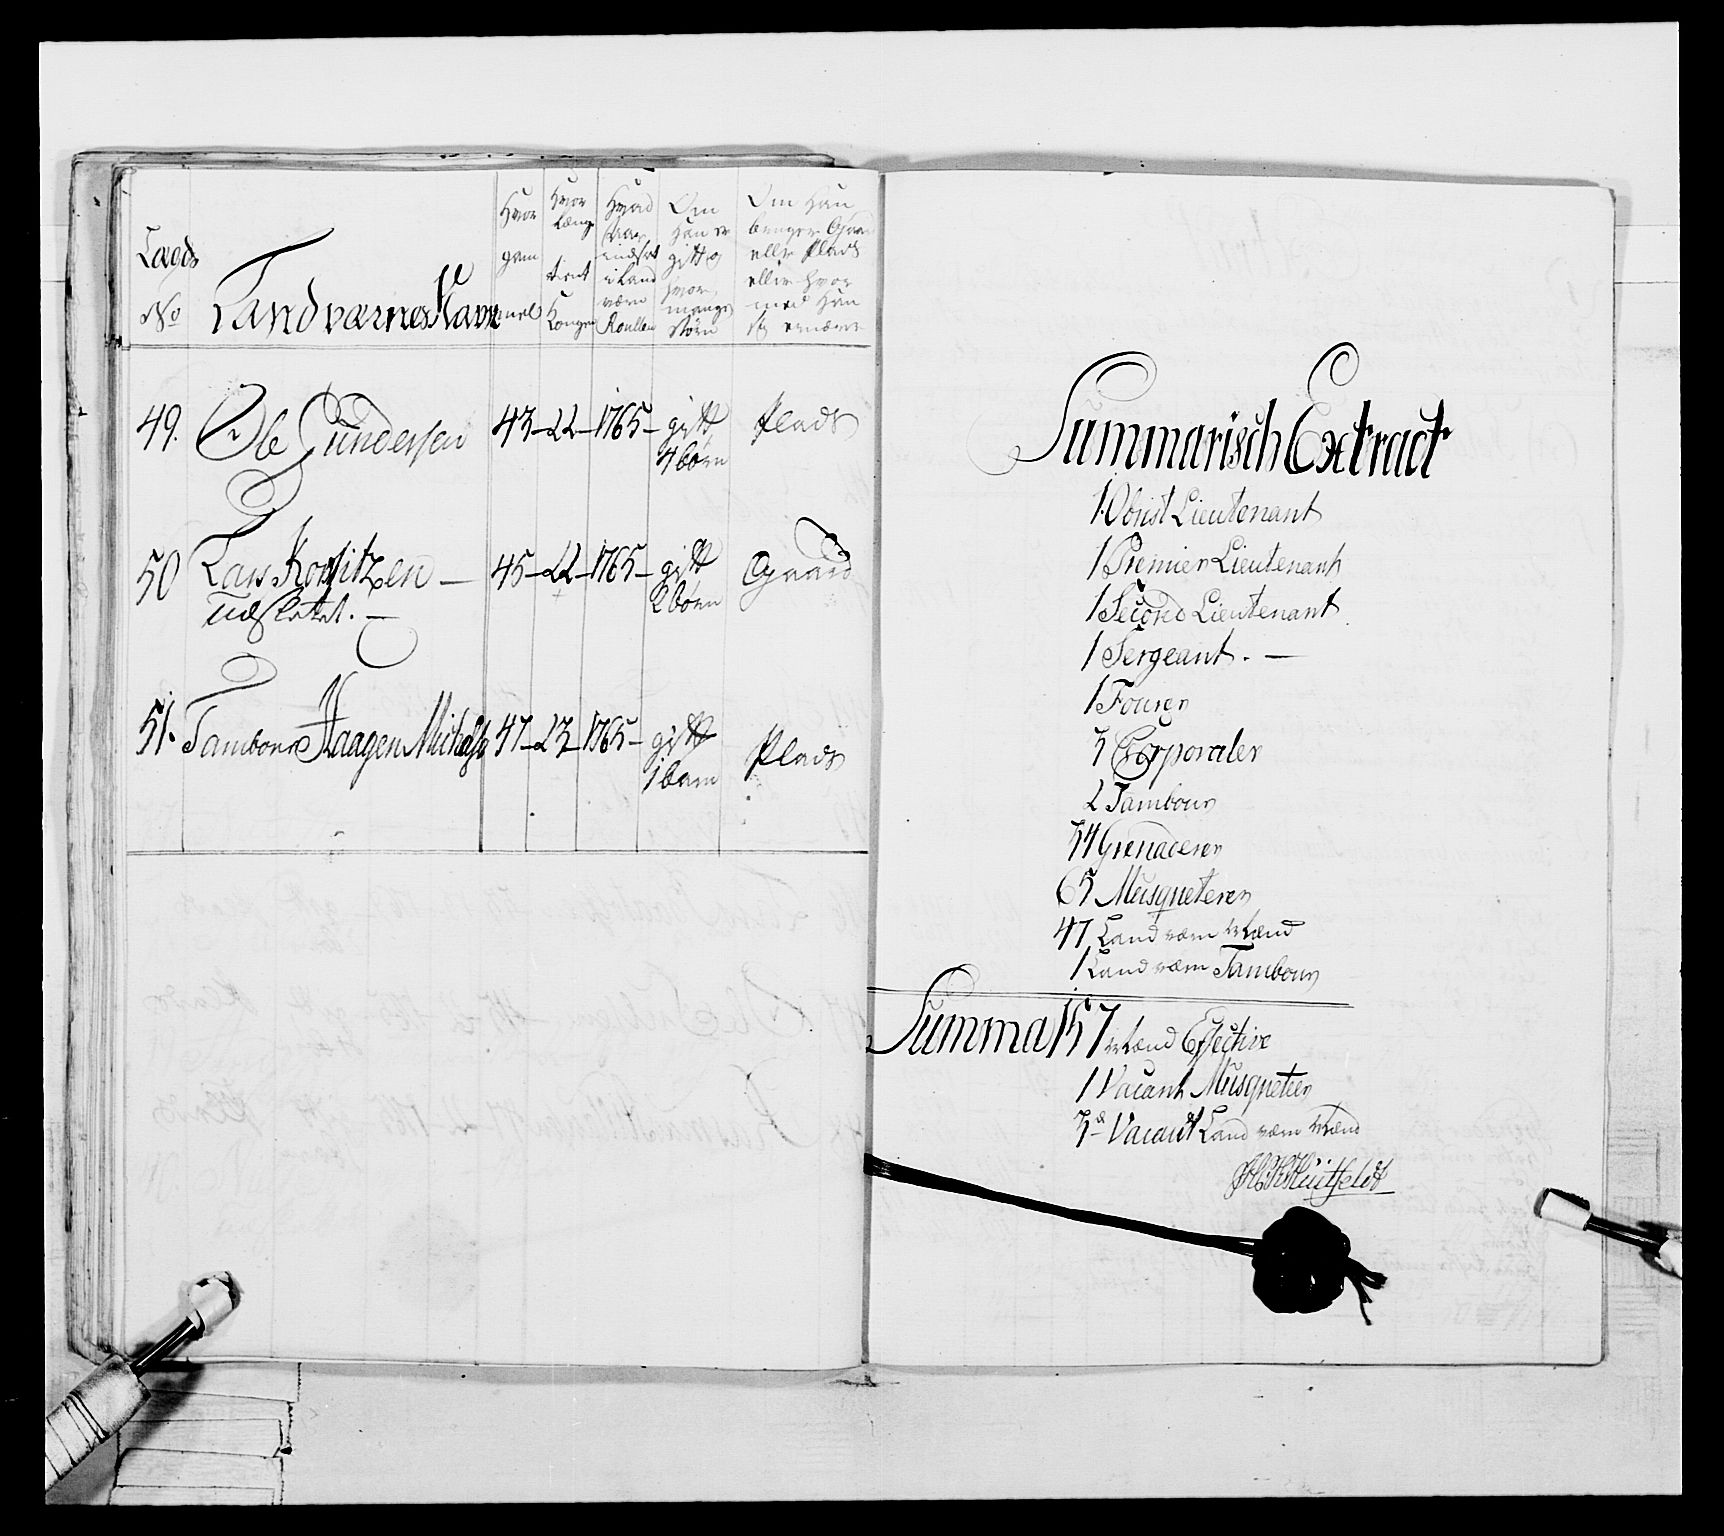 Lægds
No
Landværnes Navne
Hvor
gam
mel
Hvor
længe
tient
Kongen
Hvad
Aar
indsat
i Land
værn
Roullen
Om
Han er
gift og
hvor
mange
Børn
Om Han
beruger Gaard
eller Plads
eller hvor
med Han
sig ernærer
49. Ole Gundersen 43 – 22 – 1765 – gift Plads
4 børn
50 Lars – 45 – 22 – 1765 – gift Gaard
2 børn
udslettet. –
51. Tambour Haagen Michels: 47 – 23 – 1765 – gift Plads
1 barn
Summarisch Extract
1. Obrist Lieutenant
1 Premier Lieutenant
1 Second Lieutenant
1 Sergeant. –
1 Fourer
3 Corporaler
2 Tambour
34 Grenaderer
65 Musqueterer
47 Land værn Mænd
1 Land værn Tambour
Summa 157 Mænd Effective
1 Vacant Musqueteer
3 Vacant Land værn Mænd
Huitfeldt